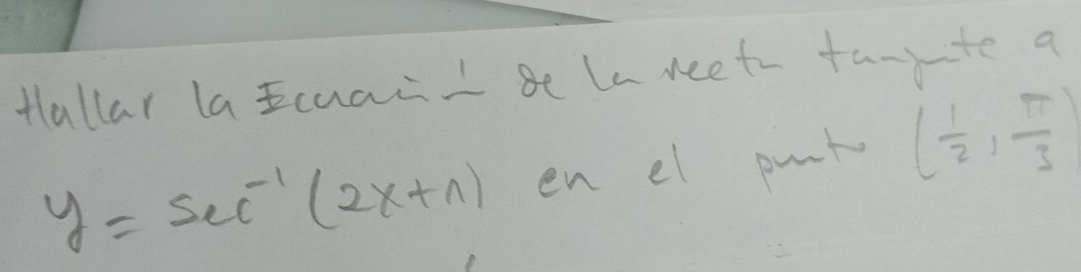 Hallar la Ecuación de la recta tangente a
y = sec⁻¹ (2x+1) en el punto (1/2, π/3)